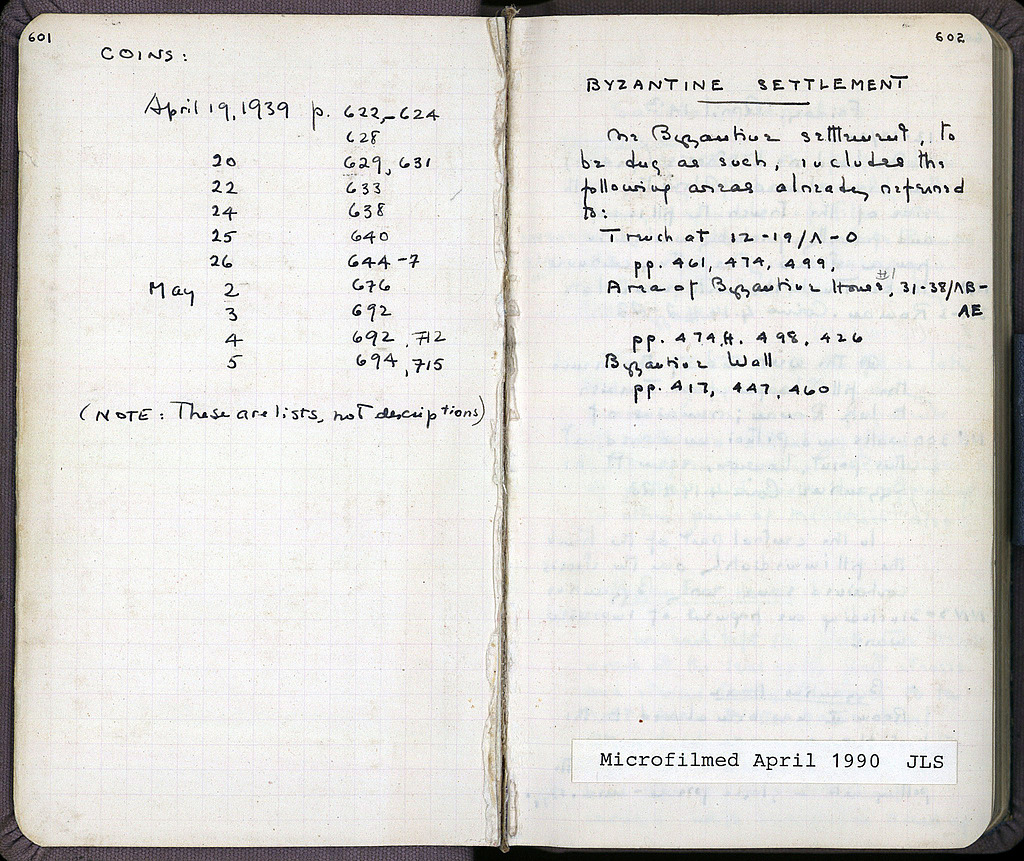 601
COINS:
April 19, 1939 p. 622, -624
628
20 629, 631
22 633
24 638
25 640
26 644-7
May 2 676
3 692
4 692, 712
5 694, 715
(NOTE: These are lists, not descriptions)
602
BYZANTINE SETTLEMENT
The Byzantine settlement, to
be dug as such, includes the
following areas already referred
to:
Trench at 12-19/Λ-O
pp. 461, 474, 499,
#1
Area of Byzantine House, 31-38/ΛB-
ΛE
pp. 474ff. 498, 426
Byzantine Wall
pp. 417, 447, 460
Microfilmed April 1990 JLS